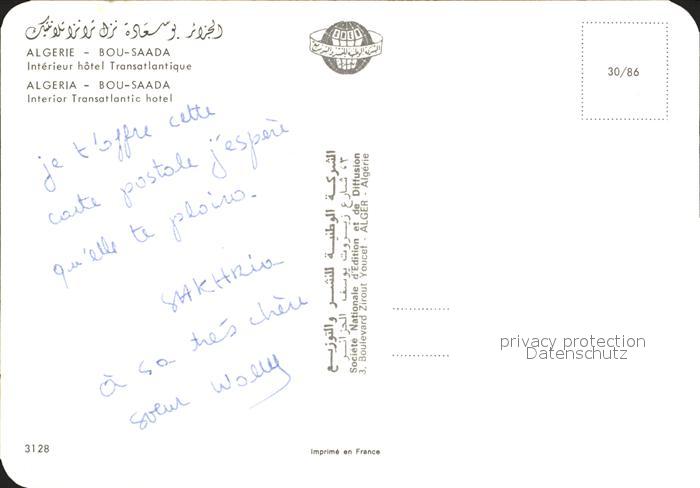 الجزائر بوسعادة نزل ترانزاتلانتيك
ALGERIE - BOU-SAADA
Intérieur hôtel Transatlantique
ALGERIA - BOU-SAADA
Interior Transatlantic hotel
SNED
30/86
je t'offre cette
carte postale j'espère
qu'elle te plaira.
SAKHRia
à sa très chère
sœur Wally
الشركة الوطنية للنشر والتوزيع
٣، شارع زيروت يوسف الجزائر
Société Nationale d'Edition et de Diffusion
3, Boulevard Zirout Youcef - ALGER - Algérie
privacy protection
Datenschutz
3128
Imprimé en France